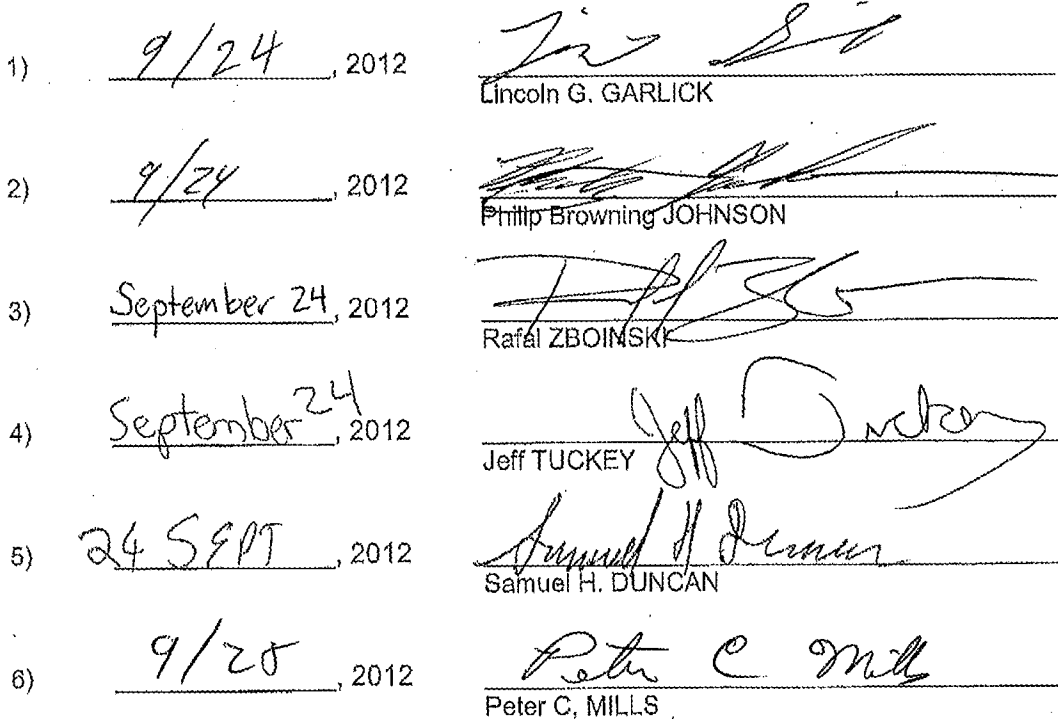 1) 9/24, 2012
Lincoln G. GARLICK
2) 9/24, 2012
Philip Browning JOHNSON
3) September 24, 2012
Rafal ZBOINSKI
4) September 24, 2012 Jeff Tuckey
Jeff TUCKEY
5) 24 SEPT, 2012 Samuel H Duncan
Samuel H. DUNCAN
6) 9/25, 2012 Peter C Mills
Peter C, MILLS